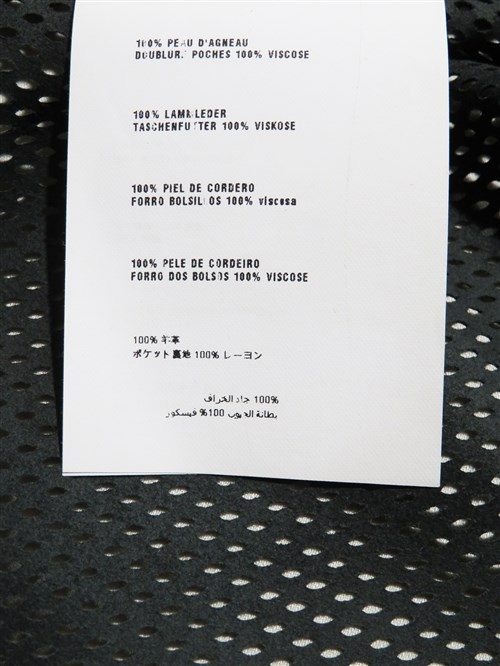 100% PEAU D'AGNEAU
DOUBLURE POCHES 100% VISCOSE
100% LAMMLEDER
TASCHENFUTTER 100% VISKOSE
100% PIEL DE CORDERO
FORRO BOLSILLOS 100% viscosa
100% PELE DE CORDEIRO
FORRO DOS BOLSOS 100% VISCOSE
100% 羊革
ポケット裏地 100% レーヨン
100% جلد الخراف
بطانة الجيوب 100% فيسكوز